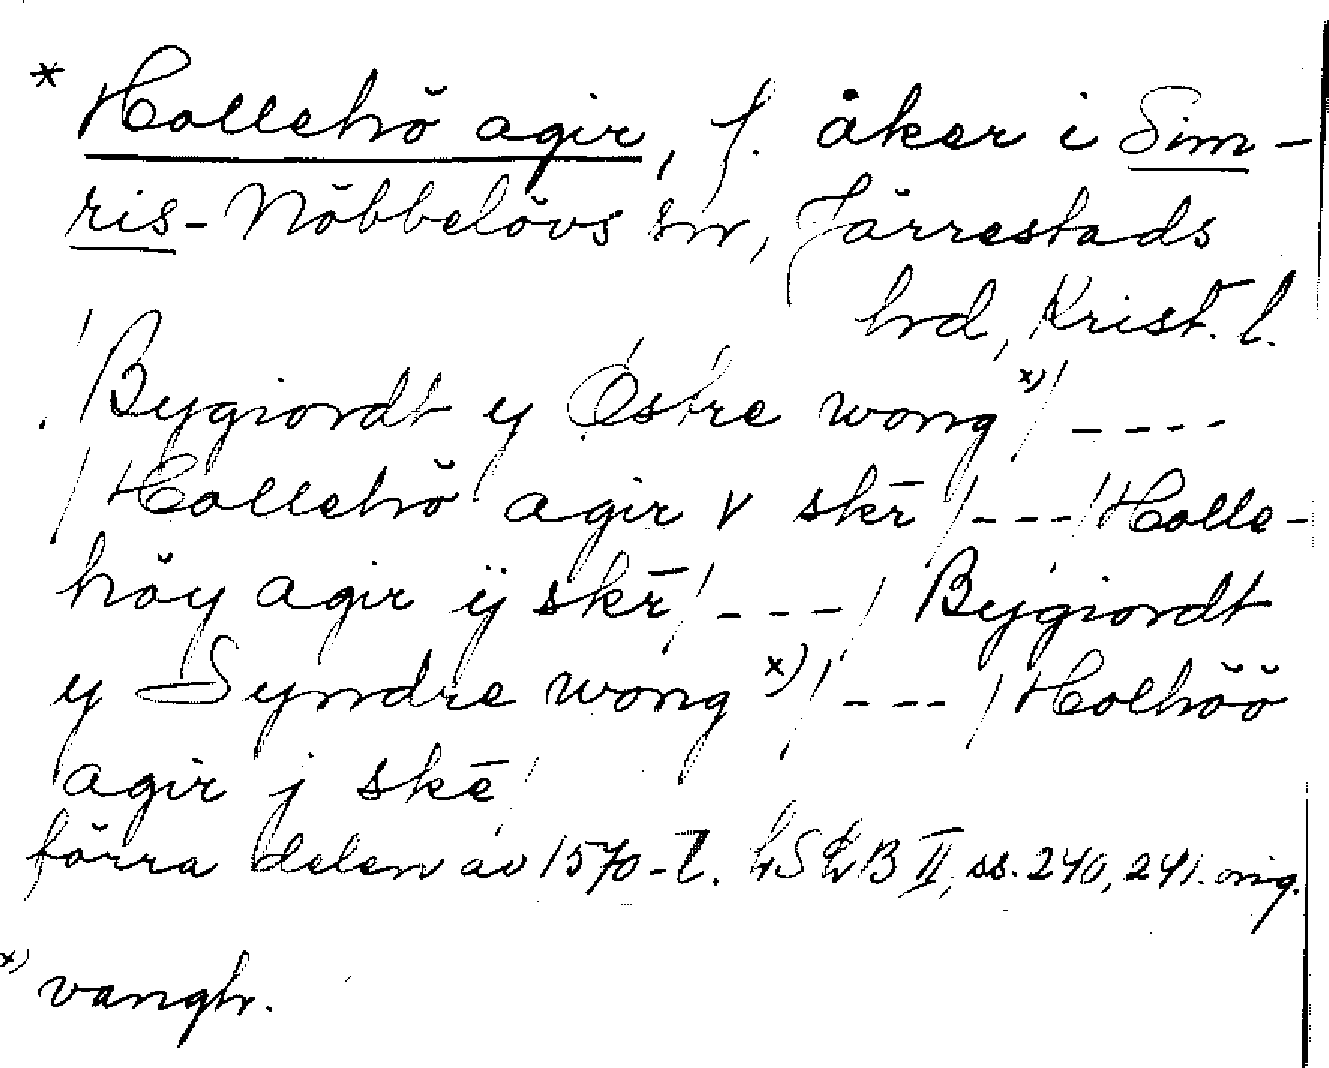 * Hollehö agir, f. åker i Sim-
ris-Nöbbelövs sn, Järrestads
hd, Krist. l.
/Bygiordt y Östre wong x)/ ----
/Hollehö agir v skē /---/Holle-
höy agir ij skē/---/ Bygiordt
y Syndre wong x)/---/Holhöö
agir j skē/
förra delen av 1570-t. LSLB II, ss. 240, 241. orig.
x) vangh.